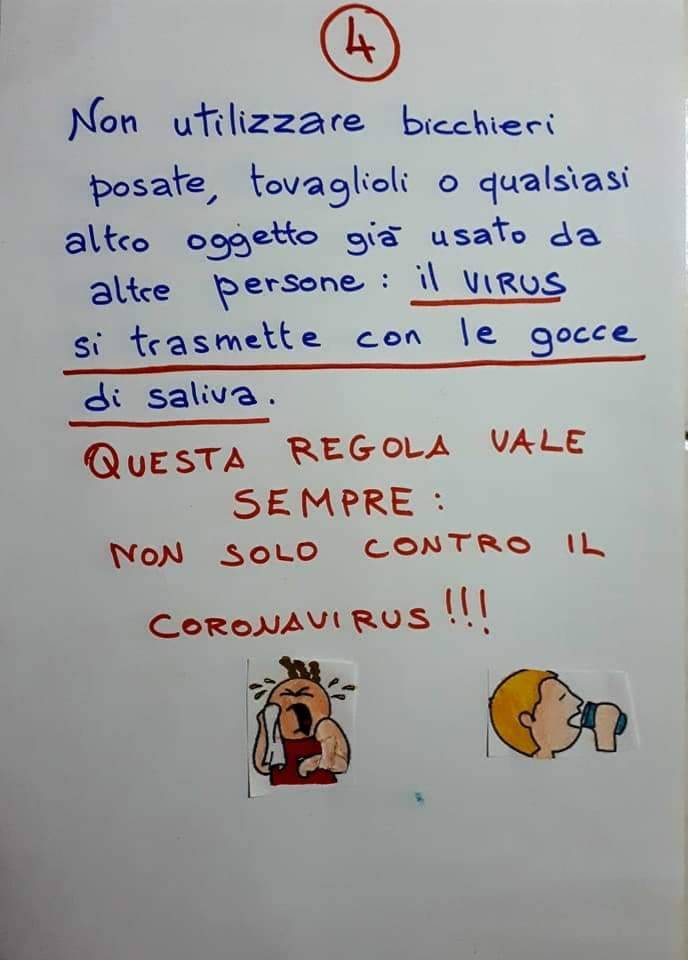 4
Non utilizzare bicchieri
posate, tovaglioli o qualsiasi
altro oggetto già usato da
altre persone: il VIRUS
si trasmette con le gocce
di saliva.
QUESTA REGOLA VALE
SEMPRE:
NON SOLO CONTRO IL
CORONAVIRUS!!!